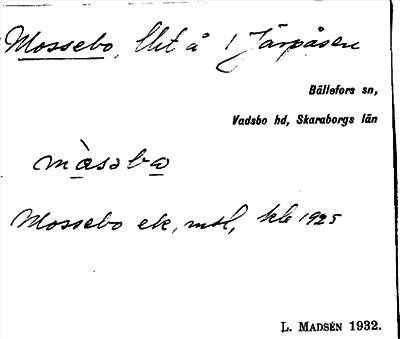 Mossebo, lht å 1 Järpåsen
Bällefors sn,
Vadsbo hd, Skaraborgs län
mòsəbo
Mossebo ek, mtl, kb 1925
L. MADSÉN 1932.